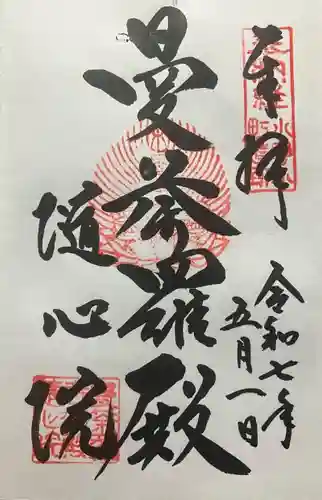 奉拝
令和七年
五月一日
曼荼羅殿
隨心院